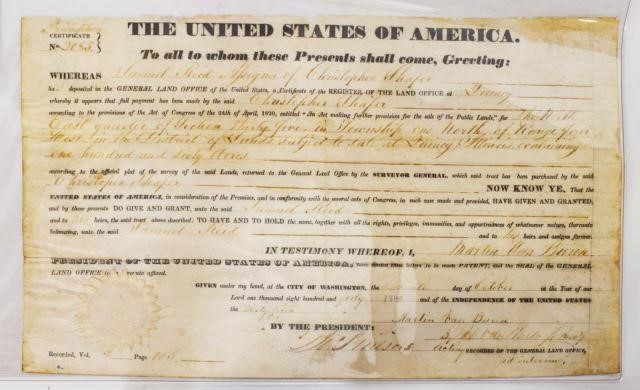 THE UNITED STATES OF AMERICA.
CERTIFICATE
No 2088
To all to whom these Presents shall come, Greeting:
WHEREAS Samuel Reed Assignee of Christopher Shafer
deposited in the GENERAL LAND OFFICE of the United States, a Certificate of the REGISTER OF THE LAND OFFICE at Quincy
whereby it appears that full payment has been made by the said Christopher Shafer
according to the provisions of the Act of Congress of the 24th of April, 1820, entitled "An Act making further provision for the sale of the Public Lands," for The North
East quarter of Section thirty five in Township one North, of Range four
West in the District of Lands subject to sale at Quincy Illinois containing
one hundred and sixty Acres
according to the official plat of the survey of the said Lands, returned to the General Land Office by the SURVEYOR GENERAL, which said tract has been purchased by the said
Christopher Shafer NOW KNOW YE, That the
UNITED STATES OF AMERICA, in consideration of the Premises, and in conformity with the several acts of Congress, in such case made and provided, HAVE GIVEN AND GRANTED,
and by these presents DO GIVE AND GRANT, unto the said Samuel Reed
and to his heirs, the said tract above described: TO HAVE AND TO HOLD the same, together with all the rights, privileges, immunities, and appurtenances of whatsoever nature, thereunto
belonging, unto the said Samuel Reed and to his heirs and assigns forever.
IN TESTIMONY WHEREOF, I, Martin Van Buren
PRESIDENT OF THE UNITED STATES OF AMERICA, have caused these letters to be made PATENT, and the SEAL of the GENERAL
LAND OFFICE to be hereunto affixed.
GIVEN under my hand, at the CITY OF WASHINGTON, the day of October in the Year of our
Lord one thousand eight hundred and forty 1840 and of the INDEPENDENCE OF THE UNITED STATES
the Sixty fifth
BY THE PRESIDENT: Martin Van Buren
Acting RECORDER OF THE GENERAL LAND OFFICE,
ad interim.
Recorded, Vol. Page